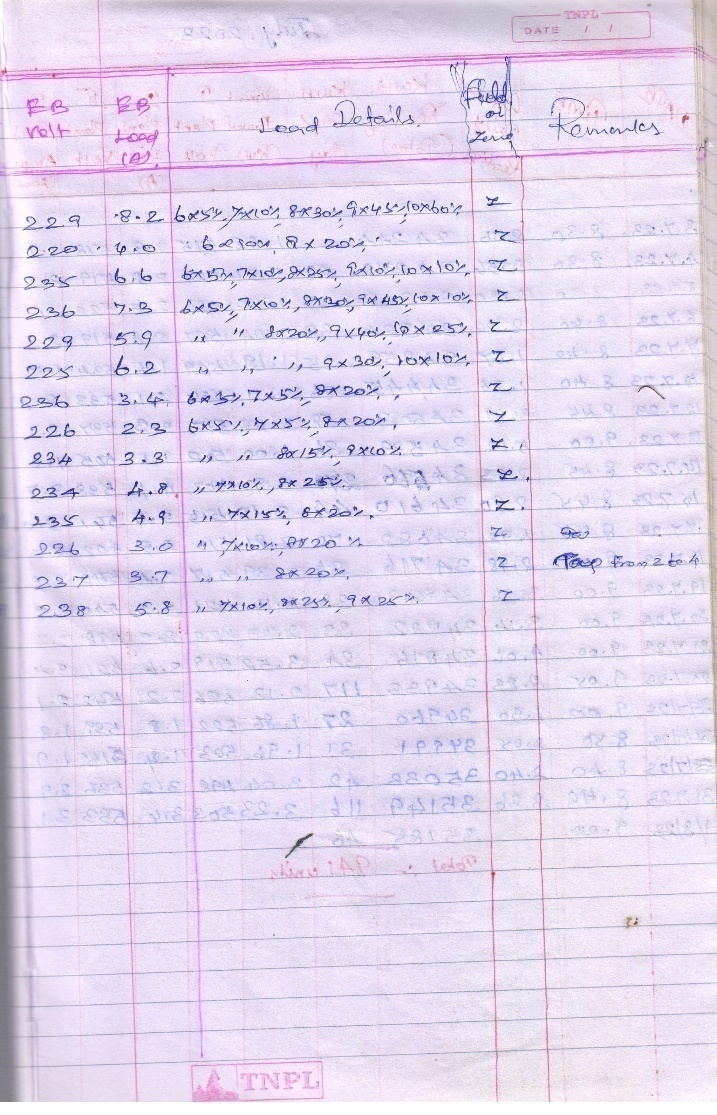 TNPL
DATE / /
EB Volt EB Load (A) Load Details. Field or Zone Remarks
229 8.2 6x5%, 7x10%, 8x30%, 9x45%, 10x60%, Z
220 4.0 6x10%, 8x20%, Z
235 6.6 6x15%, 7x10%, 8x25%, 9x10%, 10x10%, Z
236 7.3 6x5%, 7x10%, 8x30%, 9x45%, 10x10%, Z
229 5.9 " " 8x20%, 9x40%, 10x25%, Z
225 6.2 " " " 9x30%, 10x10%, Z
236 3.4 6x5%, 7x5%, 8x20%, Z
226 2.3 6x5%, 7x5%, 8x20%, Z
234 3.3 " " 8x15%, 9x10%. Z
234 4.8 " 7x10%, 8x25%, Z.
235 4.9 " 7x15%, 8x20%, Z.
226 3.0 " 7x10%, 8x20% Z
237 3.7 " " 8x20%, Z from 2 to 4
238 5.8 " 7x10%, 8x25%, 9x25%. Z
TNPL